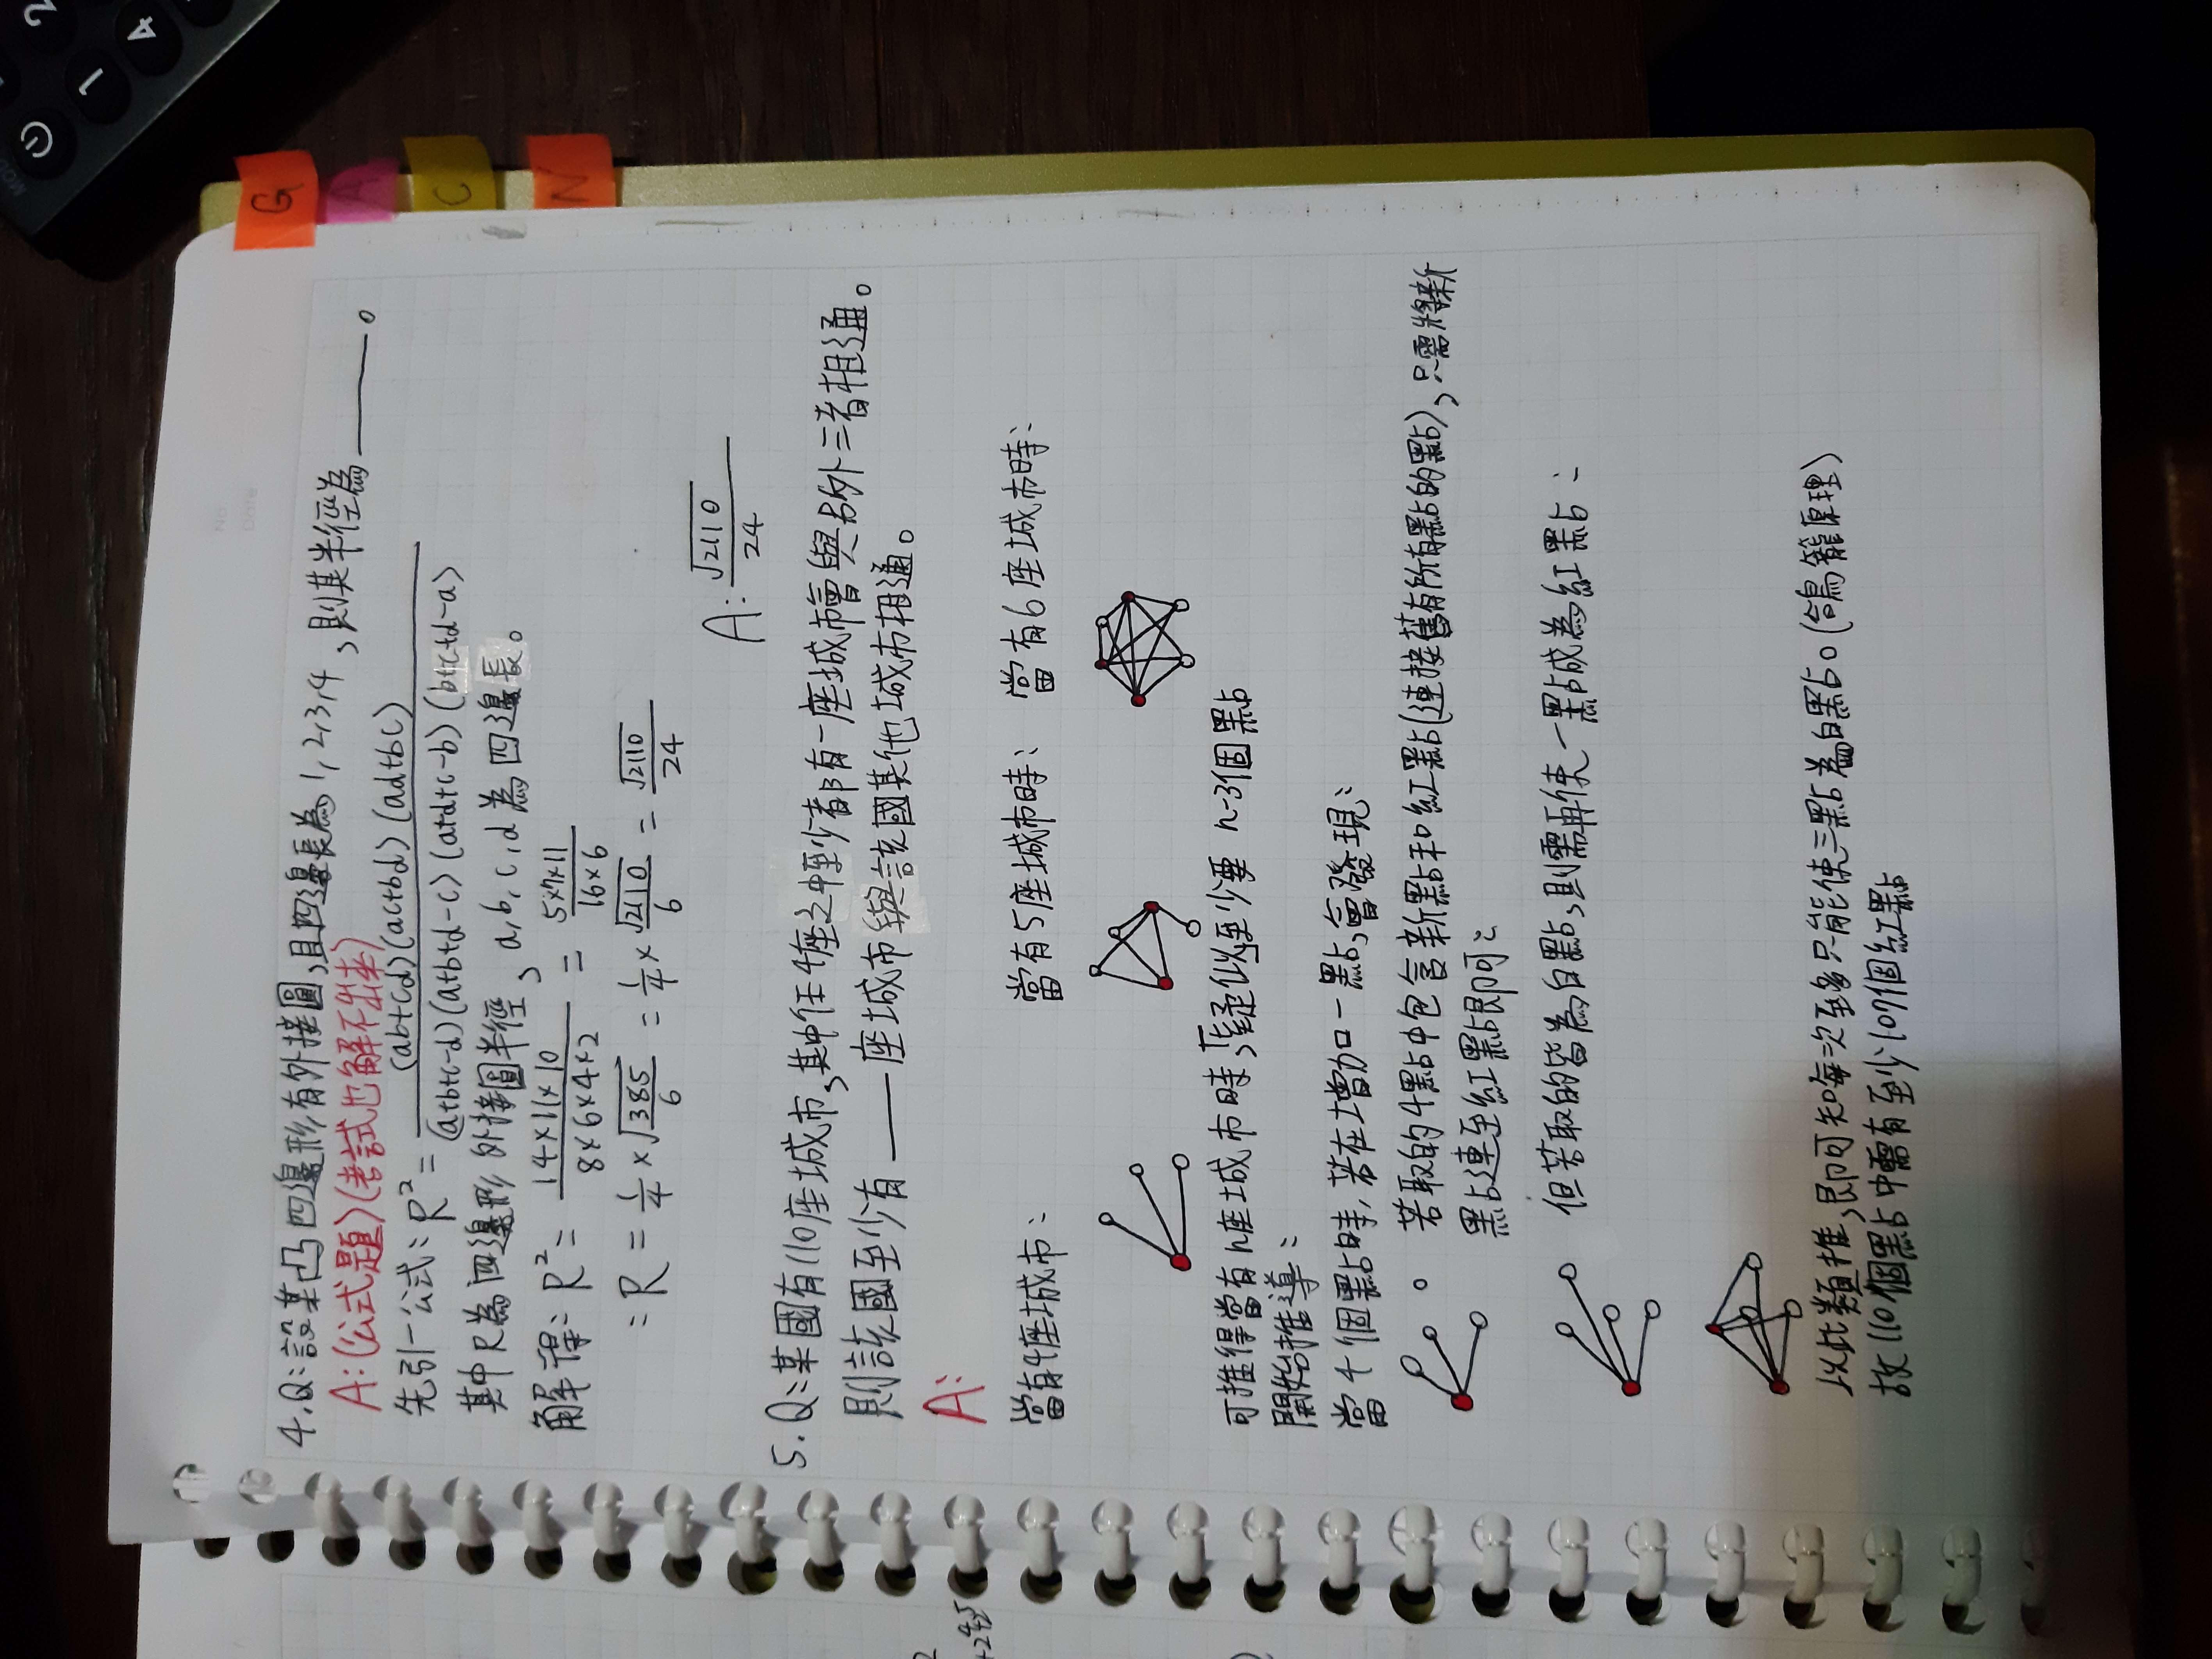 4.Q:設某凸四邊形有外接圓,且四邊長為1,2,3,4,則其半徑為______。
A:(公式題)(考試也解不出來)
先引一公式:R²= (ab+cd)(ac+bd)(ad+bc) / (a+b+c-d)(a+b+d-c)(a+d+c-b)(b+c+d-a)
其中R為四邊形外接圓半徑,a,b,c,d為四邊長。
解得:R²= 14×11×10 / 8×6×4×2 = 5×7×11 / 16×6
=R= 1/4 × √385/6 = 1/4 × √2110/6 = √2110/24
A: √2110/24
5.Q:某國有110座城市,其中任4座之中至少都有一座城市會與另外三者相通。
則該國至少有______座城市與該國其他城市相通。
A:
當有4座城市: 當有5座城市時: 當有6座城市時:
可推得當有n座城市時,「疑似」至少要 n-3個點
開始推導:
當4個點時,若在增加一點,會發現:
若取的4點中包含新點和紅點(連接舊有所有點的點),只需將新
點連至紅點即可:
但若取的皆為白點,則需再使一點成為紅點:
以此類推,即可知每次至多只能使三點為白點。(鴿籠原理)
故110個點中需有至少107個紅點
G
A
C
N
1
2
4